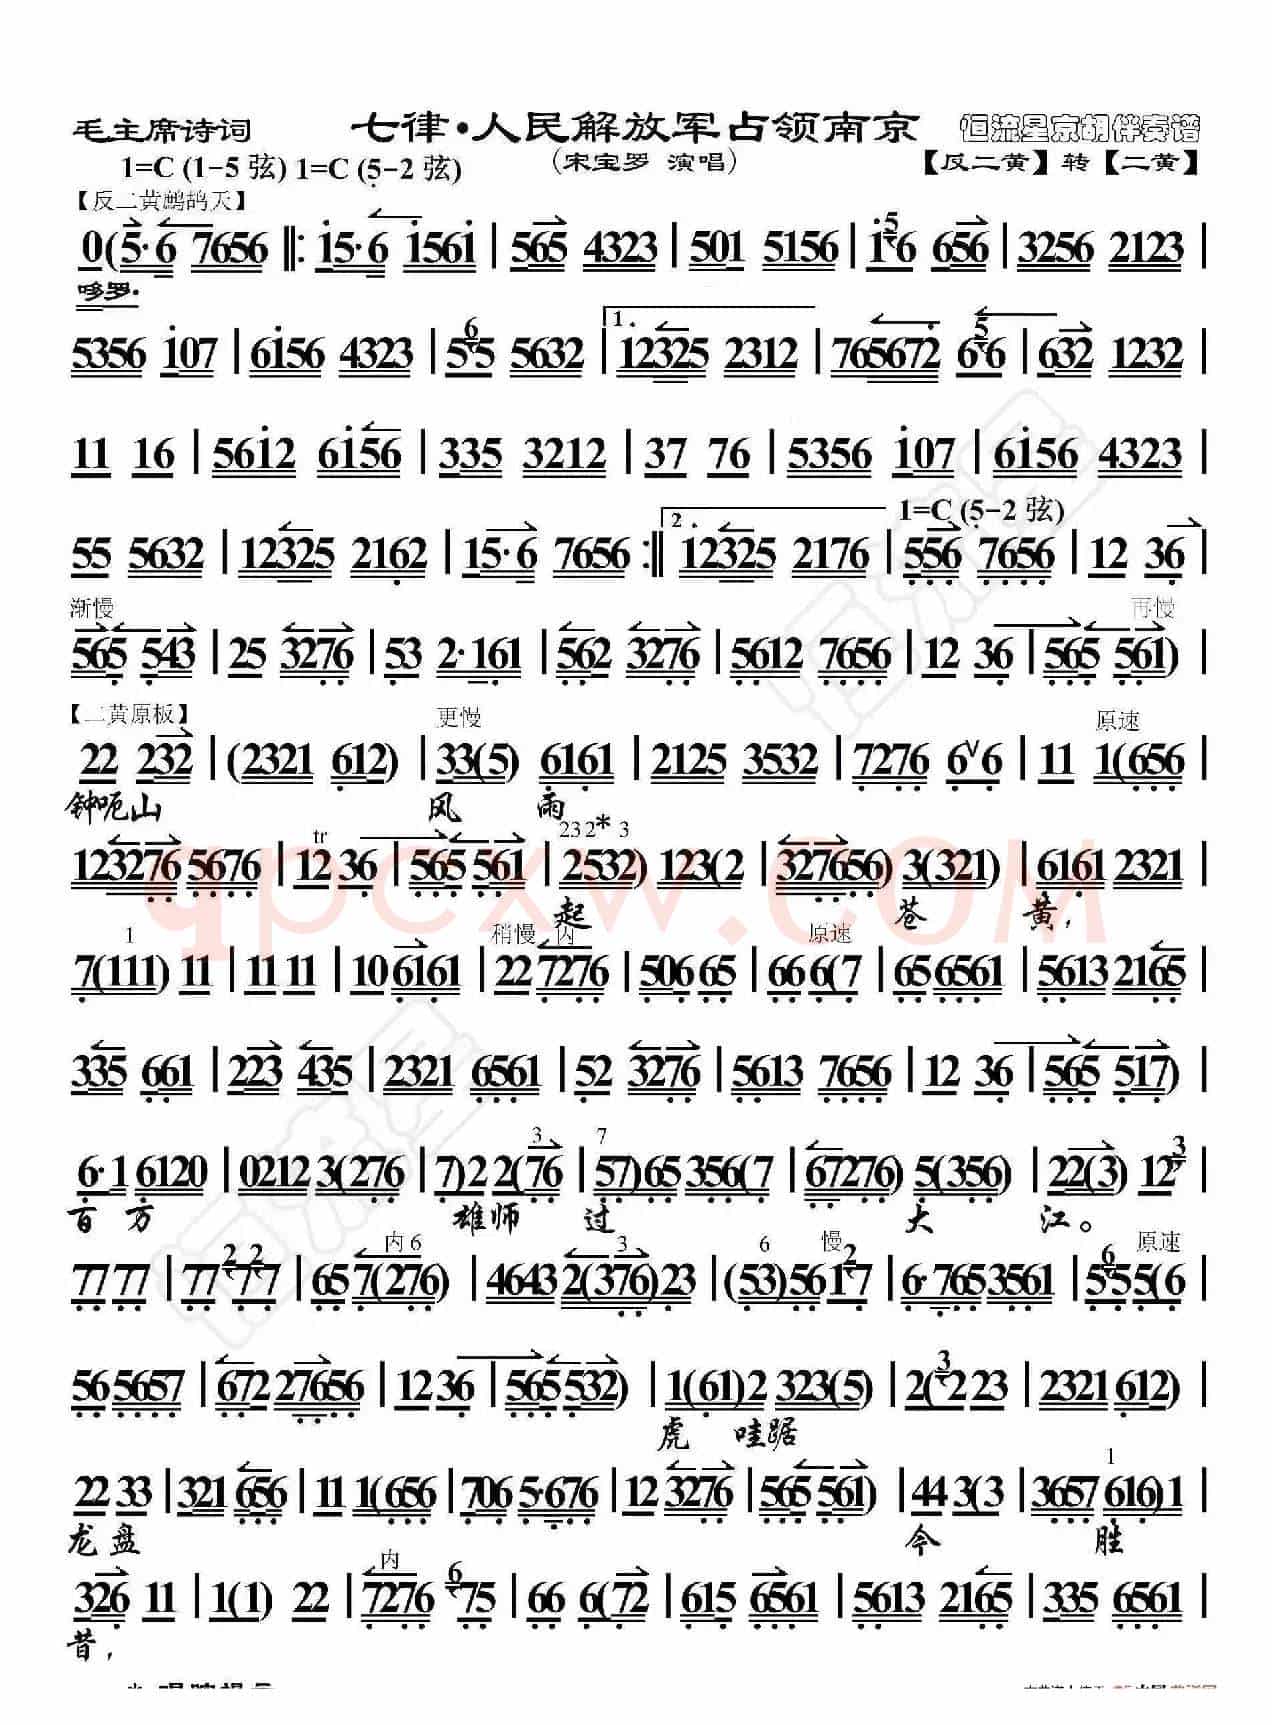 毛主席诗词 七律·人民解放军占领南京 恒流星京胡伴奏谱
1=C (1-5 弦) 1=C (5-2 弦) (宋宝罗 演唱) 【反二黄】转【二黄】
【反二黄鹧鸪天】
0(5·6 7656 ‖: i5·6 i56i | 565 4323 | 501 5156 | i 5 6 656 | 3256 2123 |
哆罗·
5356 i07 | 6i56 4323 | 5 6 5 5632 | 1. 12325 2312 | 765672 6 5 6 | 632 1232 |
11 16 | 56i2 6i56 | 335 3212 | 37 76 | 5356 i07 | 6i56 4323 |
1=C (5-2 弦)
55 5632 | 12325 2162 | 15·6 7656 :‖ 2. 12325 2176 | 556 7656 | 12 36 |
渐慢 再慢
565 543 | 25 3276 | 53 2·161 | 562 3276 | 5612 7656 | 12 36 | 565 561) |
【二黄原板】 更慢 原速
22 232 | (2321 612) | 33(5) 6161 | 2125 3532 | 7276 6 V 6 | 11 1(656 |
钟呃山 风 雨
tr 232* 3
123276 5676 | 12 36 | 565 561 | 2532) 123(2 | 327656) 3(321) | 6161 2321 |
起 苍 黄，
1 稍慢 内 原速
7(111) 11 | 11 11 | 10 6161 | 22 7276 | 506 65 | 66 6(7 | 65 6561 | 5613 2165 |
335 661 | 223 435 | 2321 6561 | 52 3276 | 5613 7656 | 12 36 | 565 517) |
3 7 3
6·1 6120 | 0212 3(276 | 7)2 2(76 | 57)65 356(7 | 67276) 5(356 | 22(3) 12 |
百 万 雄师 过 大 江。
2 2 内 6 3 6 慢 2 6 原速
77 77 | 77 77 | 65 7(276) | 4643 2(376)23 | (53)56 17 | 6·765 3561 | 555(6 |
3
56 5657 | 672 27656 | 12 36 | 565 532) | 1(61)2 323(5) | 2(2 23 | 2321 612) |
虎 哇踞
1
22 33 | 321 656 | 11 1(656 | 706 5·676 | 12 3276 | 565 561) | 44 3(3 | 3657 616)1 |
龙 盘 今 胜
内 6
326 11 | 1(1) 22 | 7276 75 | 66 6(72 | 615 6561 | 5613 2165 | 335 6561 |
昔，
qpcxw.COM
恒流星
恒流星